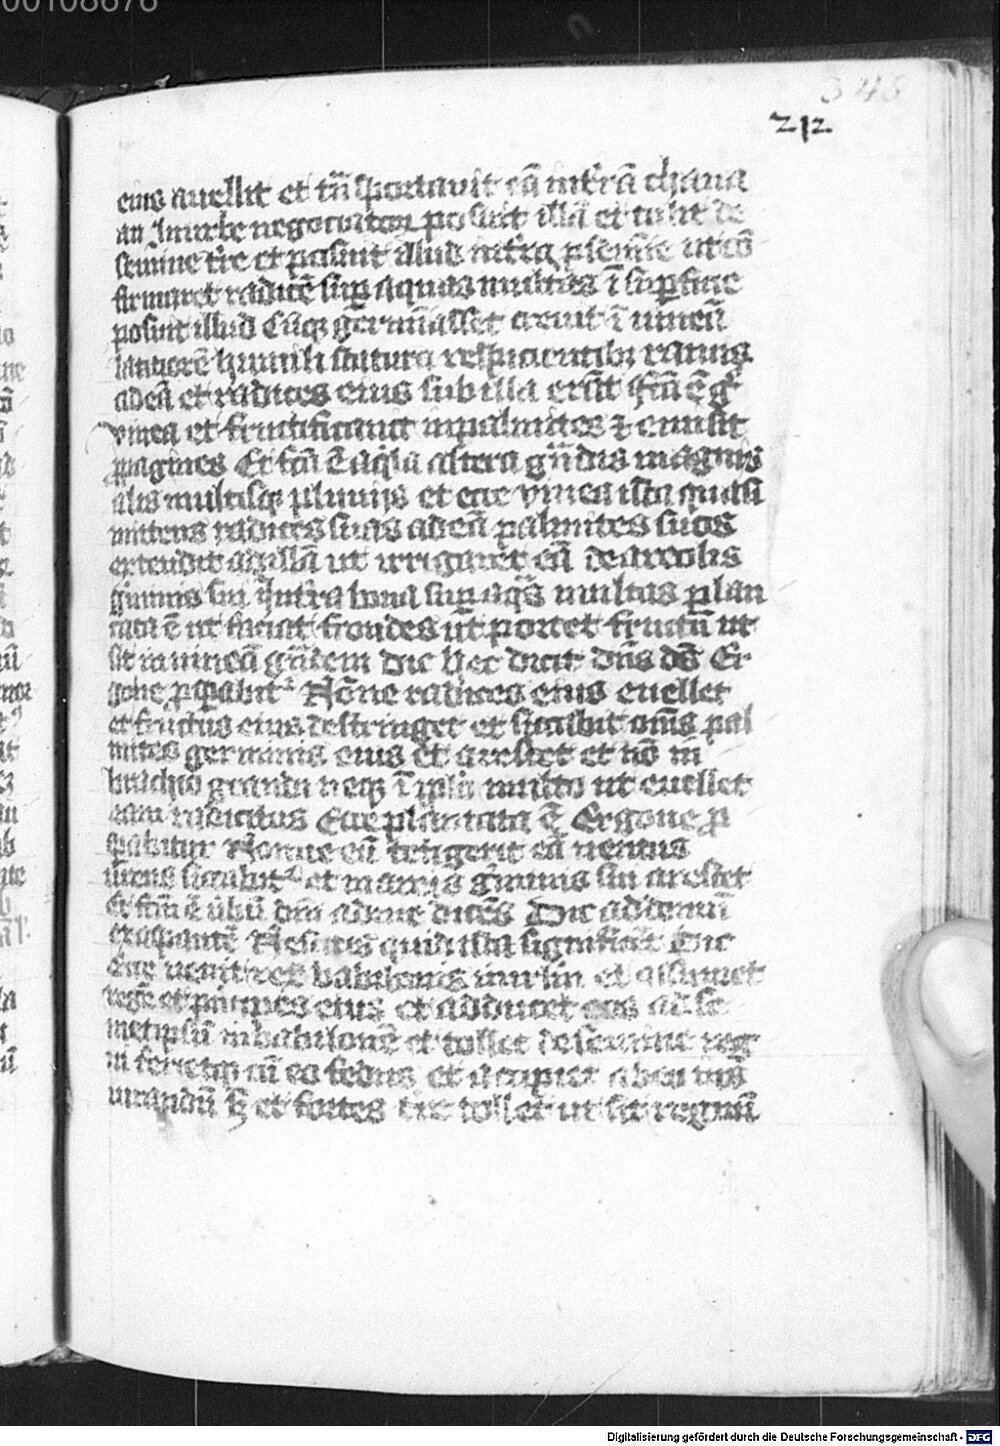 00108676
346
212
eius auellit et trāsportauit eā in terrā chana
an In urbe negociatorꝝ posuit illā et tulit de
semine t're et posuit illud in t'ra p semīe ut cō
firmaret radicē sup aquas multas ī supficie
posuit illud Cūqꝫ germīasset creuit ī uineā
latiorē humili statura respicientibꝫ ramis
ad eā et radices eius sub illa erāt fcā ē g°
vinea et fructificauit in palmites ⁊ emisit
ꝓpagines Et fcā ē aq̄la altera g̃ndis magnis
alis multisqꝫ plumijs et ecce vinea ista quasi
mittens radices suas ad eā palmites suos
extendit ad illā ut irrigaret eā de areolis
g'minis sui In t'ra bona sup aq̄s multas plan
tata ē ut faciat frondes ut portet fructū ut
sit in vineā g̃dem Dic hec dicit dn̄s ds̄ Er
gone ꝓspabit' Nōne radices eius euellet
et fructus eius destringet et siccabit oms̄ pal
mites germinis eius et arescet et nō in
brachio grandi neqꝫ ī pplo multo ut euellet
eam radicitus Ecce plantata ē Ergone ꝓ
spabitur Nonne cū tetigerit eā uentus
urens siccabit' et in areis g'minis sui arescet
Et fcm̄ ē ubū dn̄i ad me dices̄ Dic ad domū
exaspantē Nescitis quid ista significēt Dic
Ecce uenit rex babilonis in irlm et assumet
regē et principes eius et adducet eos ad se
metipsū in babilonē et tollet de semine reg
ni ferietqꝫ cū eo fedus et
et fortes t're tollet ut sit regnū
Digitalisierung gefördert durch die Deutsche Forschungsgemeinschaft - DFG